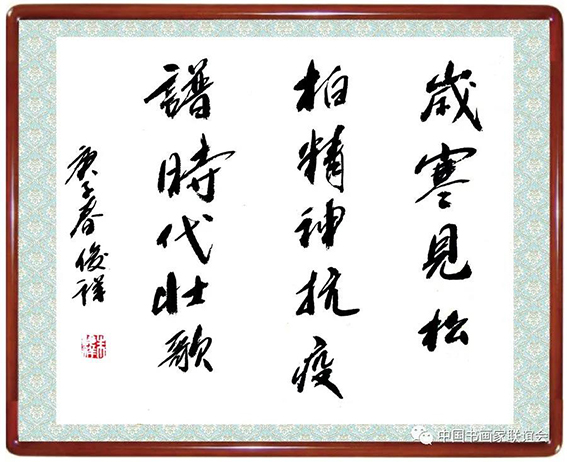 歲寒見松
柏精神抗疫
譜時代壯歌
庚子春俊祥
中国书画家联谊会